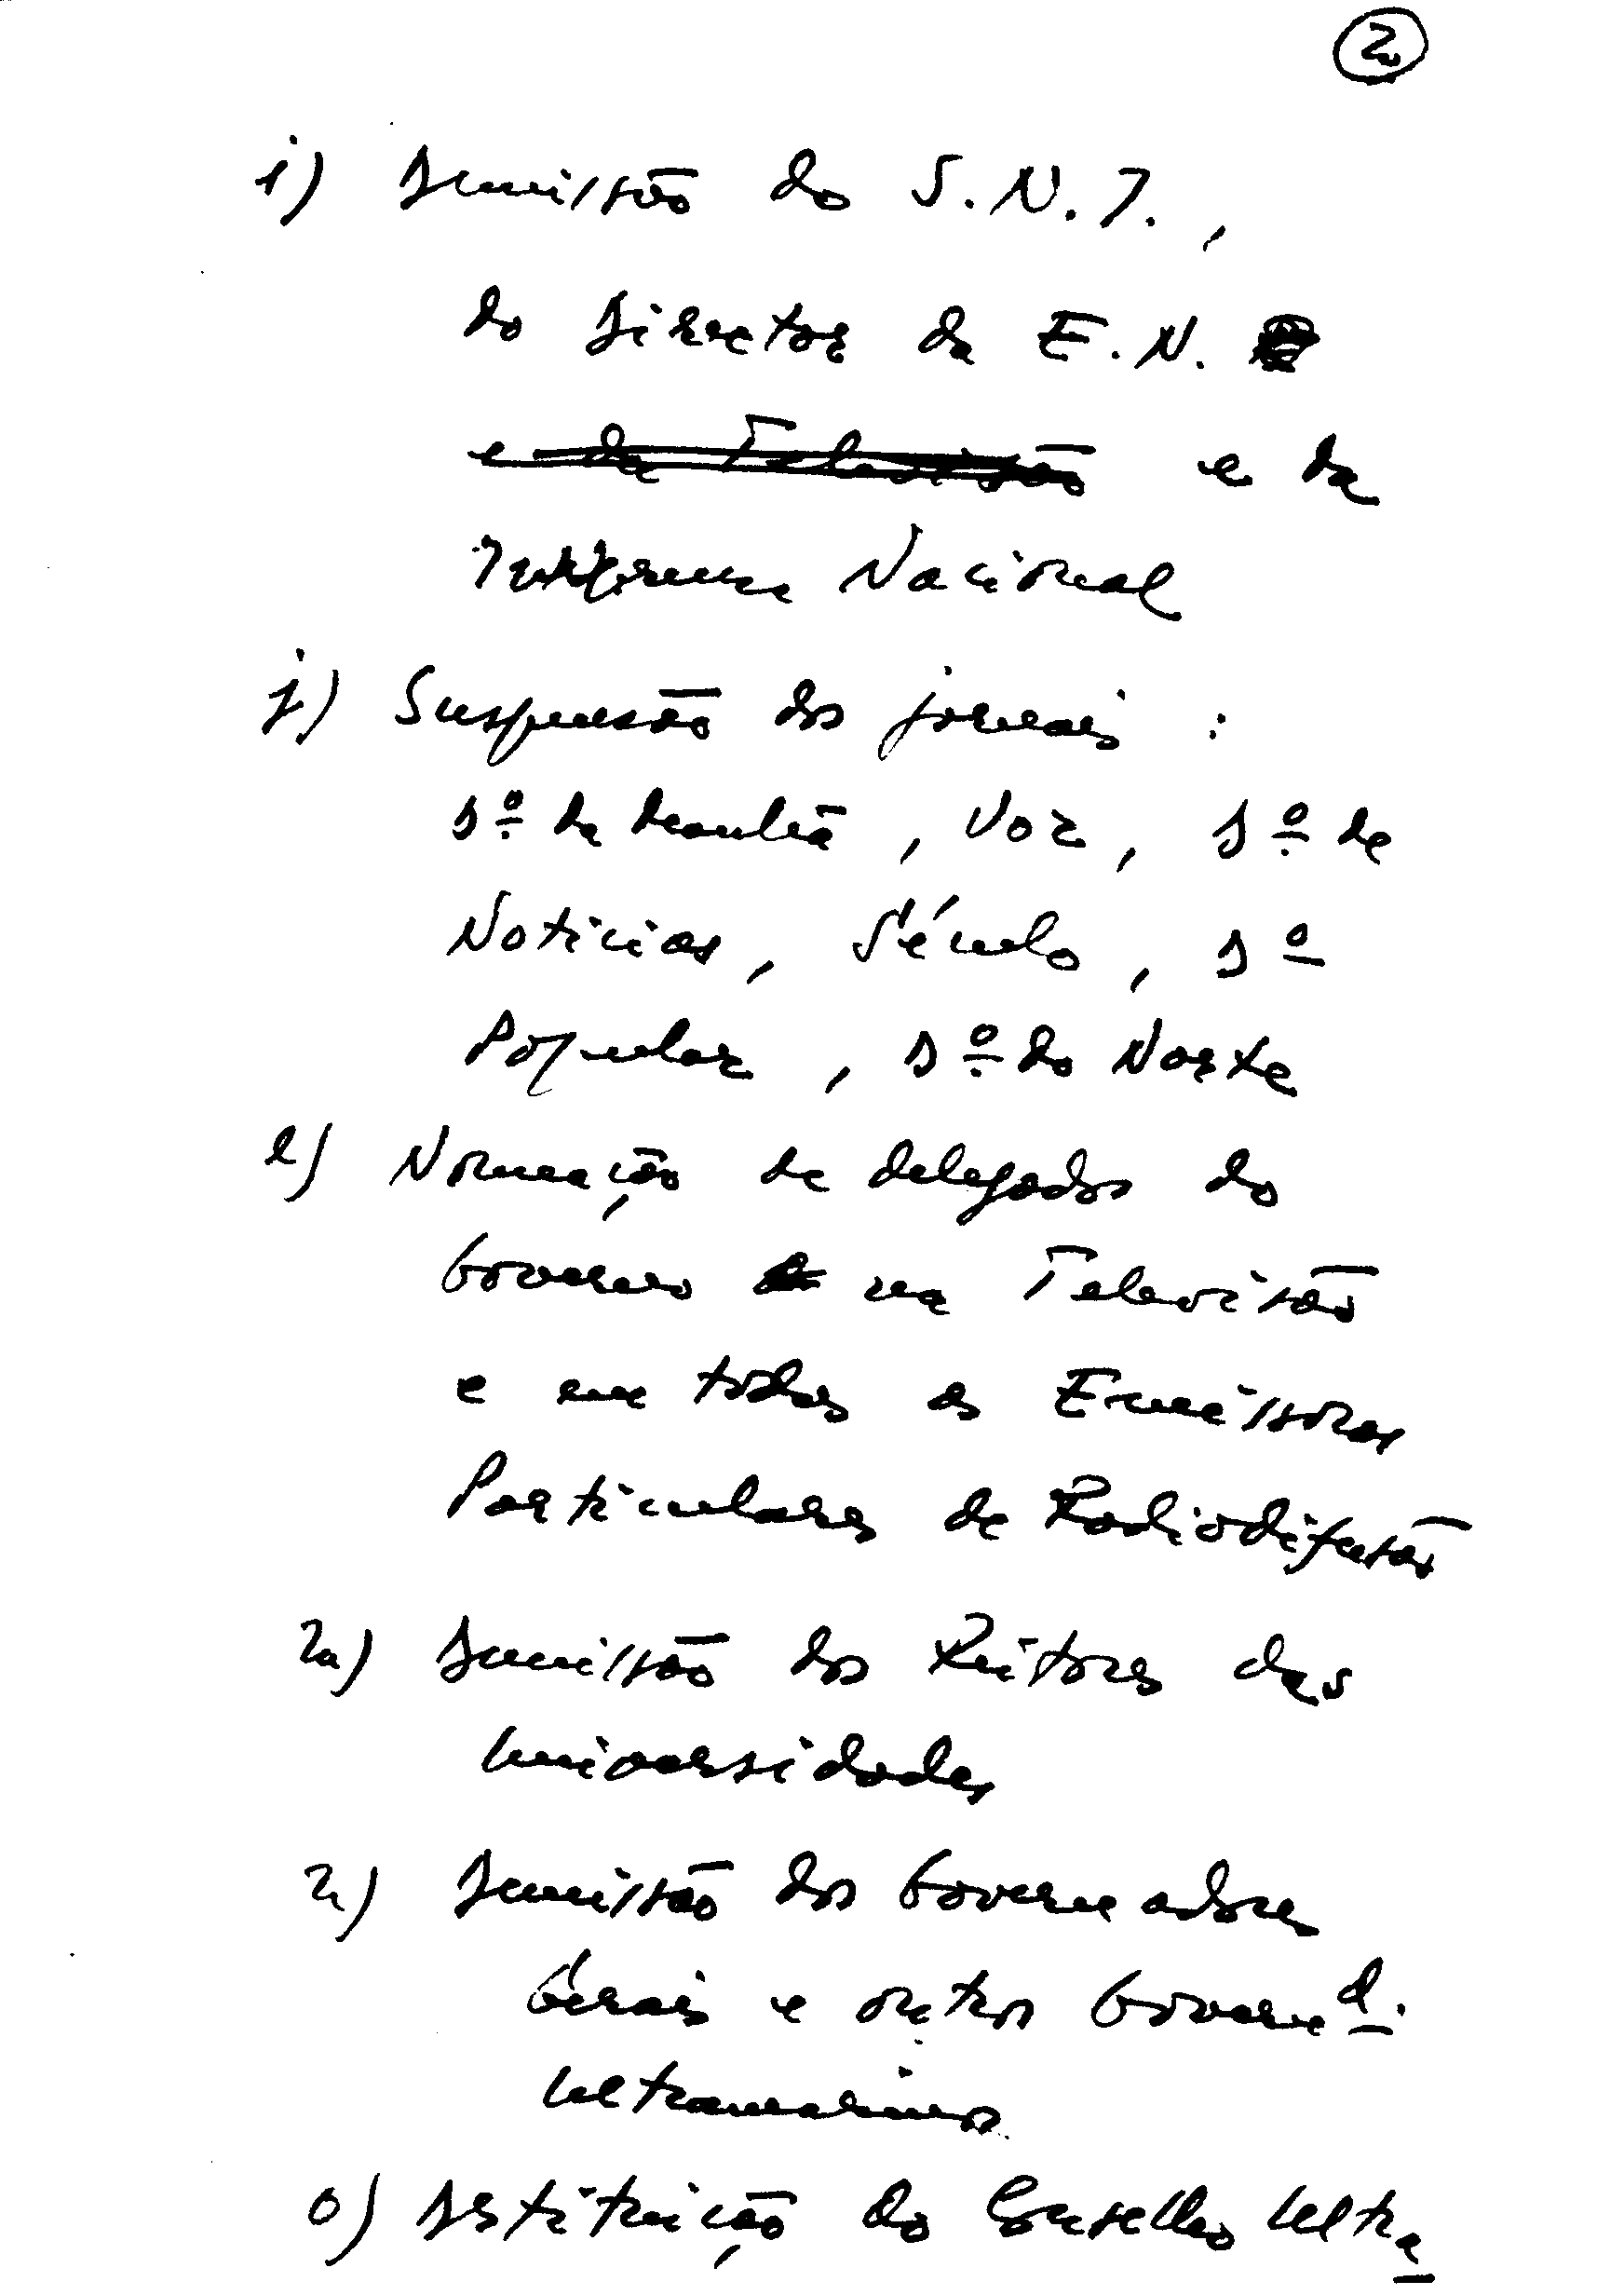 2
i) Demissão do S.N.I.,
do Director da E.N.
e da Televisão e da
Imprensa Nacional
j) Suspensão dos jornais :
Dº. da Manhã, Voz, Dº. de
Noticias, Século, Dº
Popular, Dº. do Norte
l) Nomeação de delegados do
Governo na Televisão
e em todas as Emissoras
Particulares de Radiodifusão
m) Demissão dos Reitores das
Universidades
n) Demissão dos Governadores
Gerais e outros Govern
Ultramarinos
o) Destituição do Conselho Ultra